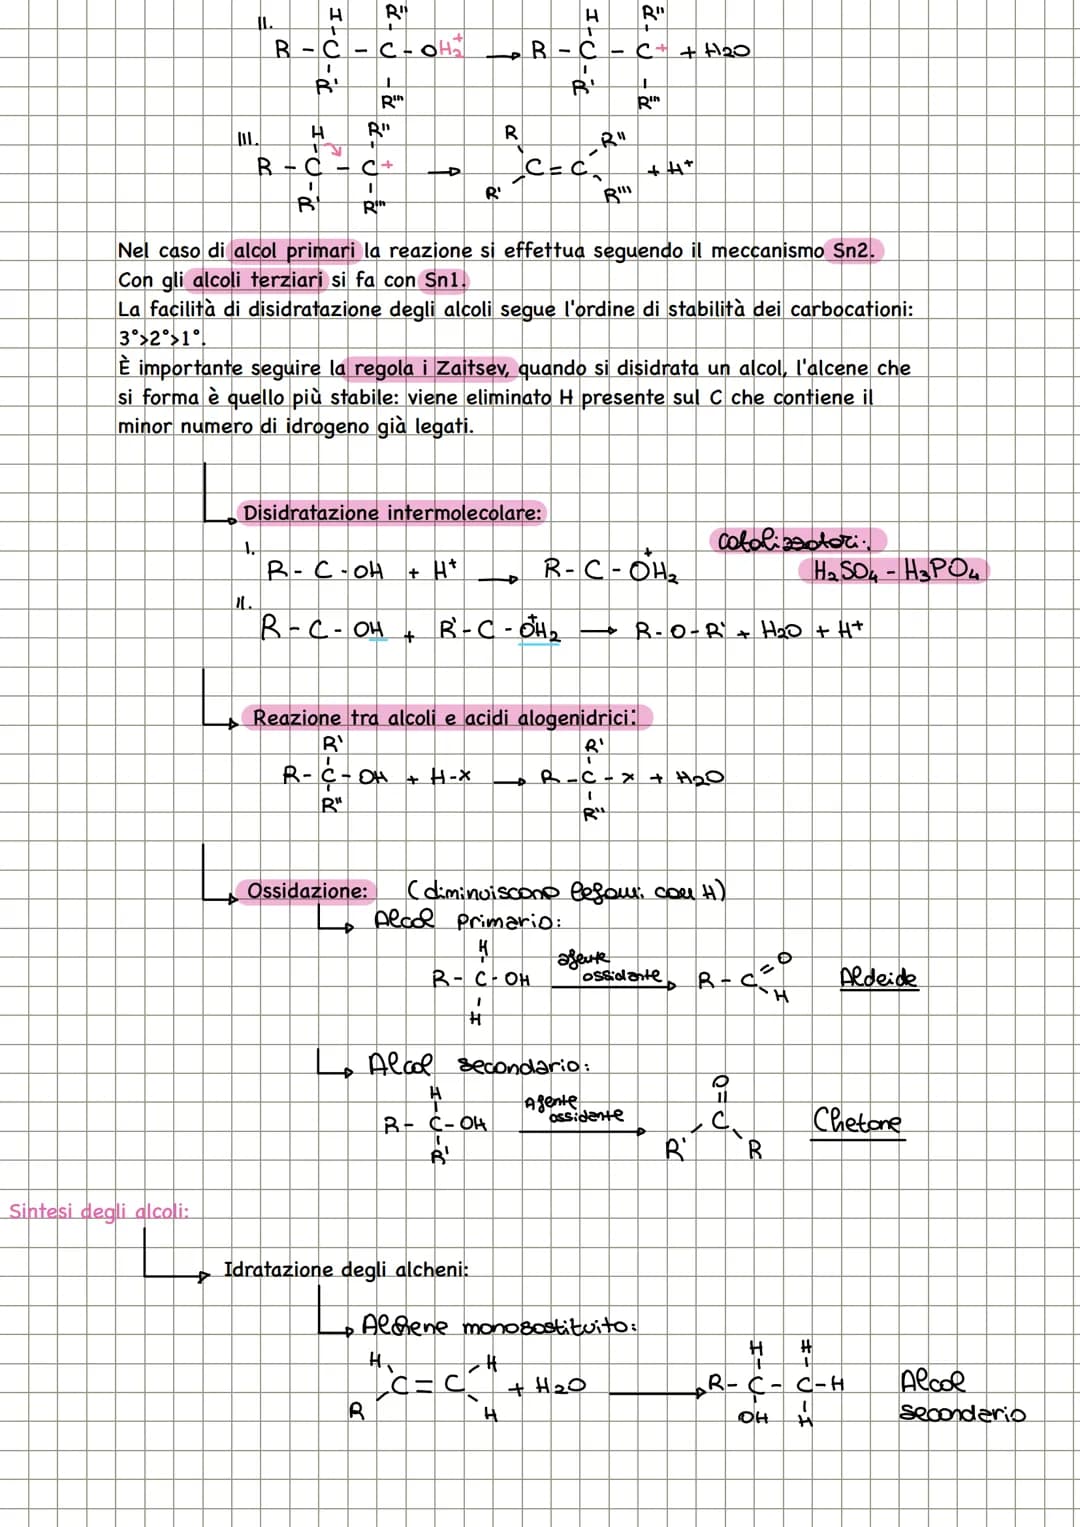 II. R - C - C - OH₂⁺ → R - C - C⁺ + H₂O
H R" R' R''' H R" R' R'''
III. R - C - C⁺ → C = C + H⁺
H R" R' R''' R R' R" R'''
Nel caso di alcol primari la reazione si effettua seguendo il meccanismo Sn2.
Con gli alcoli terziari si fa con Sn1.
La facilità di disidratazione degli alcoli segue l'ordine di stabilità dei carbocationi:
3°>2°>1°.
È importante seguire la regola i Zaitsev, quando si disidrata un alcol, l'alcene che
si forma è quello più stabile: viene eliminato H presente sul C che contiene il
minor numero di idrogeno già legati.
Disidratazione intermolecolare:
catalizzatori:
H₂SO₄ - H₃PO₄
I. R - C - OH + H⁺ → R - C - O⁺H₂
II. R - C - OH + R' - C - O⁺H₂ → R - O - R' + H₂O + H⁺
Reazione tra alcoli e acidi alogenidrici:
R' R'
R - C - OH + H - x → R - C - x + H₂O
R" R"
Ossidazione: (diminuiscono legami con H)
Alcol primario:
H
R - C - OH agente ossidante → R - C = O Aldeide
H H
Alcol secondario:
H O
R - C - OH Agente ossidante → C Chetone
R' R' R
Sintesi degli alcoli:
Idratazione degli alcheni:
Alchene monosostituito:
H H H H
C = C + H₂O → R - C - C - H Alcol
R H OH H secondario